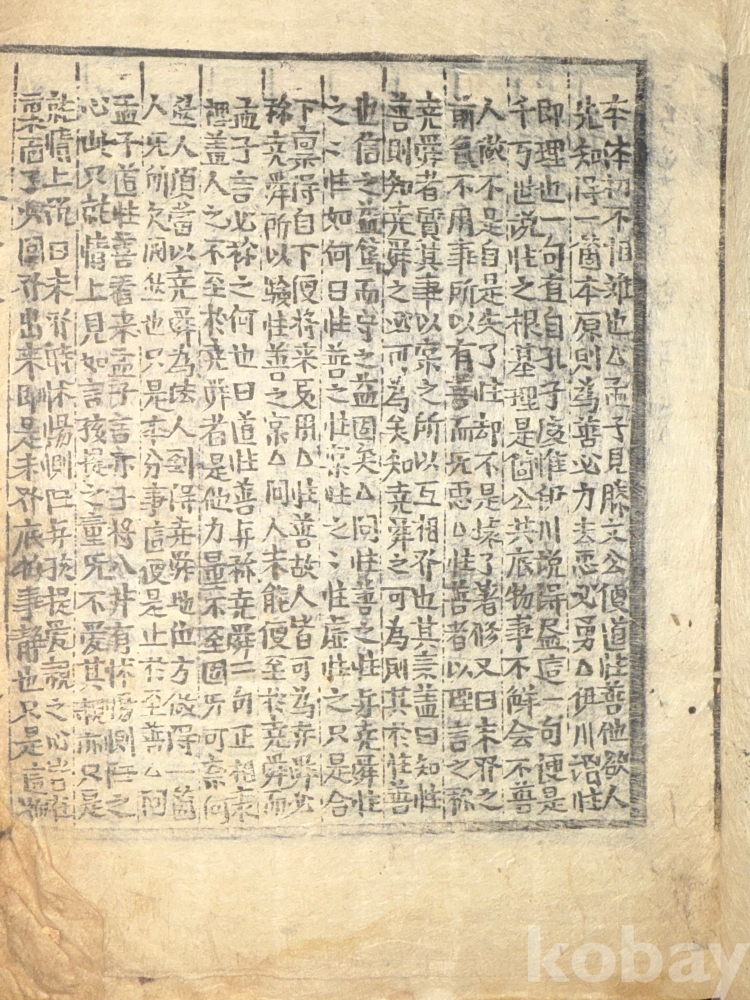 本体初不相離也△孟子見滕文公便道性善他欲人
先知得一箇本原則為善必力去悪必勇△伊川謂性
即理也一句直自孔子後惟伊川說得盡這一句便是
千万世說性之根基理是箇公共底物事不觧会不善
人做不是自是失了性却不是壊了著修又曰未発之
前氣不用事所以有善而旡悪△性善者以理言之称
尭舜者質其事以宲之所以互相発也其意盖曰知性
善則知尭舜之必可為矣知尭舜之可為則其於性善
也信之益篤而守之益固矣△問性善之性与尭舜性
之〻性如何曰性善之性宲性之〻性虚性之只是合
下禀得自下便将来受用△性善故人皆可為尭舜必
称尭舜所以驗性善之宲△問人未能便至於尭舜而
孟子言必称之何也曰道性善与称尭舜二句正相表
裡盖人之不至於尭舜者是他力量不至固旡可柰何
人須當以尭舜為法人到得尭舜地位方做得一箇
人旡所欠闕然也只是本分事這便是止於至善△問
孟子道性善看来孟子言赤子将入井有怵惕惻隠之
心此只就情上見如言孩提之童旡不愛其親亦只是
就情上說曰未発時怵惕惻隠与孩提愛親之心皆在
裏面了少間発出来即是未発底物事静也只是這物
kobay